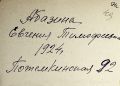 Абазина
Евгения Тимофеевна
1924
Потемкинская 92